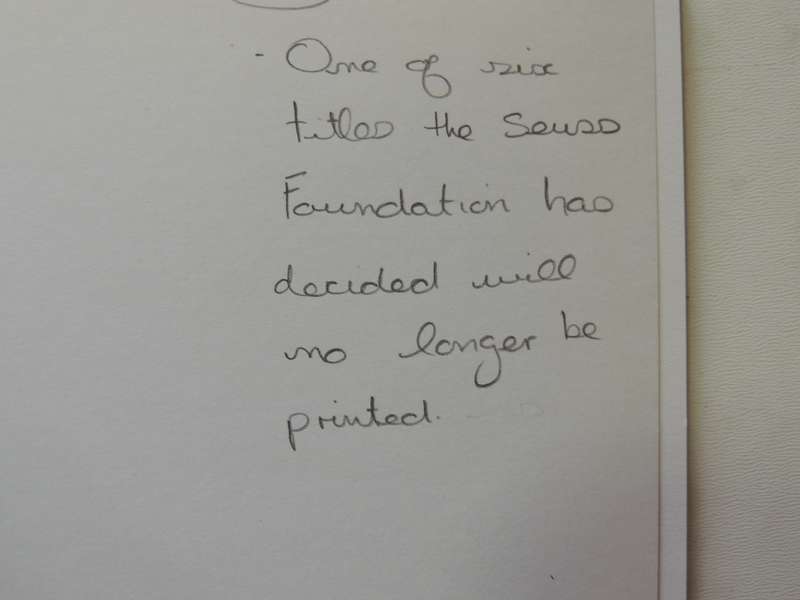 - One of six
titles the Seuss
Foundation has
decided will
no longer be
printed.